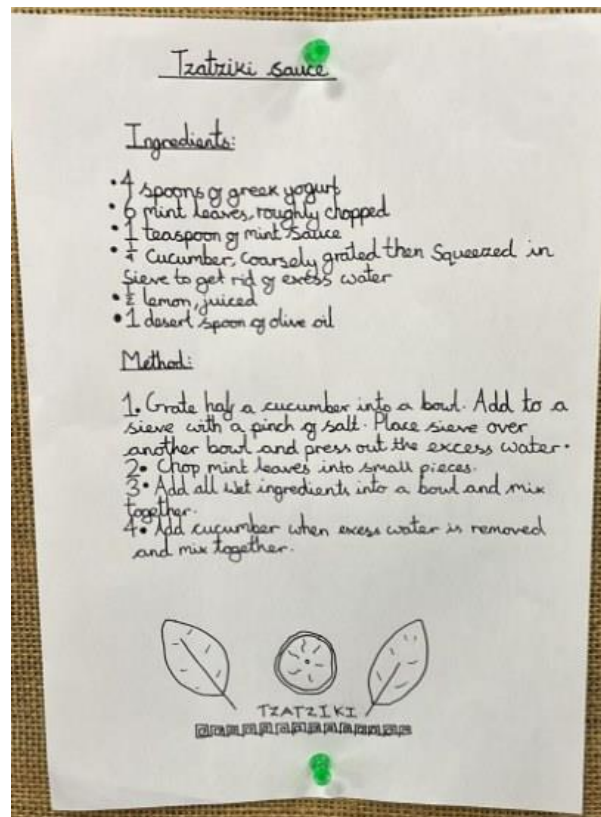 Tzatziki sauce
Ingredients:
• 4 spoons of greek yogurt
• 6 mint leaves, roughly chopped
• 1 teaspoon of mint sauce
• ¼ cucumber, coarsely grated then squeezed in
sieve to get rid of exess water
• ½ lemon, juiced
• 1 desert spoon of olive oil
Method:
1. Grate half a cucumber into a bowl. Add to a
sieve with a pinch of salt. Place sieve over
another bowl and press out the excess water.
2. Chop mint leaves into small pieces.
3. Add all wet ingredients into a bowl and mix
together.
4. Add cucumber when exess water is removed
and mix together.
TZATZIKI